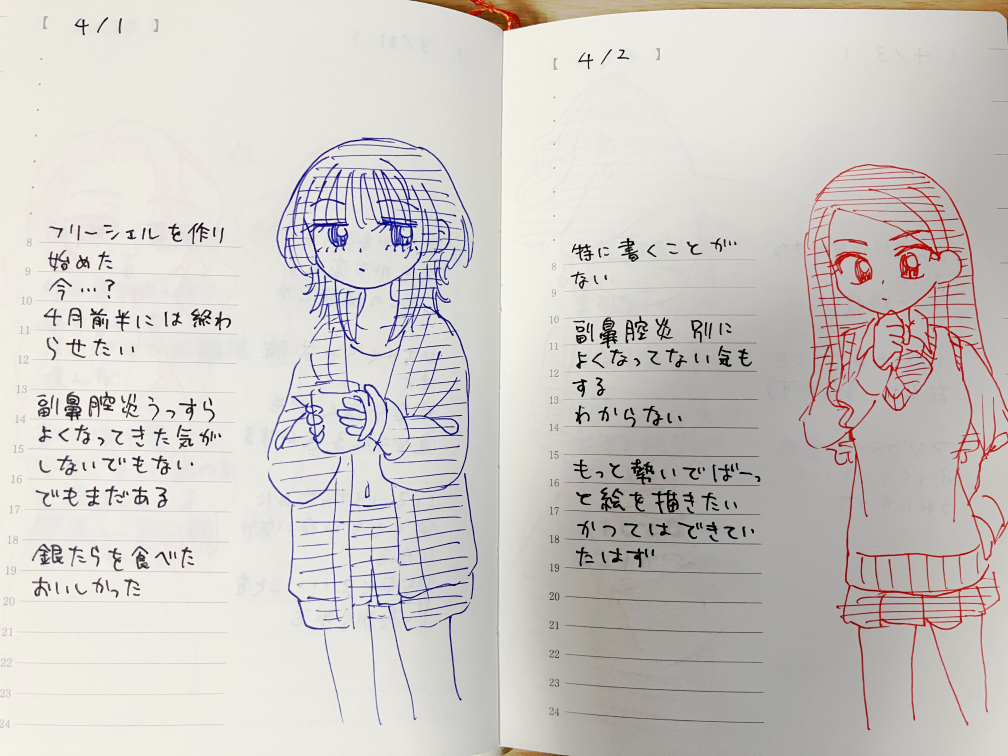 【 4/1 】
フリーシェルを作り
始めた
今…?
4月前半には終わ
らせたい
副鼻腔炎うっすら
よくなってきた気が
しないでもない
でもまだある
銀たらを食べた
おいしかった
8
9
10
11
12
13
14
15
16
17
18
19
20
21
22
23
24
【 4/2 】
特に書くことが
ない
副鼻腔炎 別に
よくなってない気も
する
わからない
もっと勢いでばーっ
と絵を描きたい
かつてはできてい
たはず
8
9
10
11
12
13
14
15
16
17
18
19
20
21
22
23
24